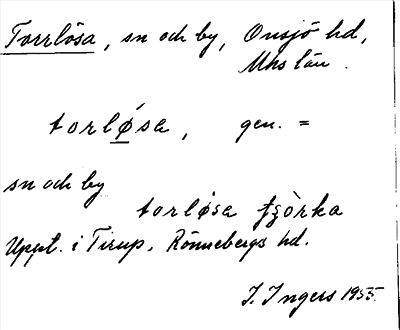 Torrlösa, sn och by, Onsjö hd,
Mhs län.
torlǿsa, gen. =
sn och by
torlǿsa
Uppt. i Tirup, Rönnebergs hd.
I. Ingers 1955.